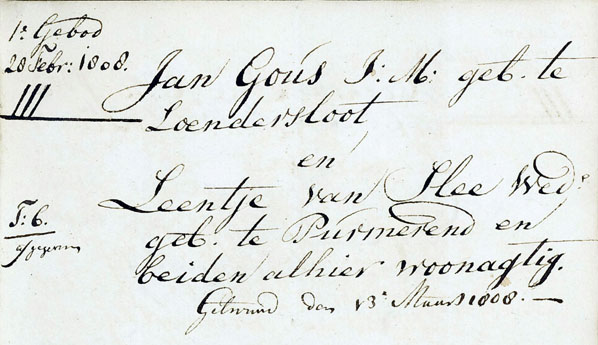 1e Gebod
28 Febr: 1808.
III
Jan Gous J: M: geb. te
Loendersloot
en
Leentje van Slee Wede
geb. te Purmerend en
beiden alhier woonagtig.
Getrouwd den 13e Maart 1808.
F: 6.
afgegeven